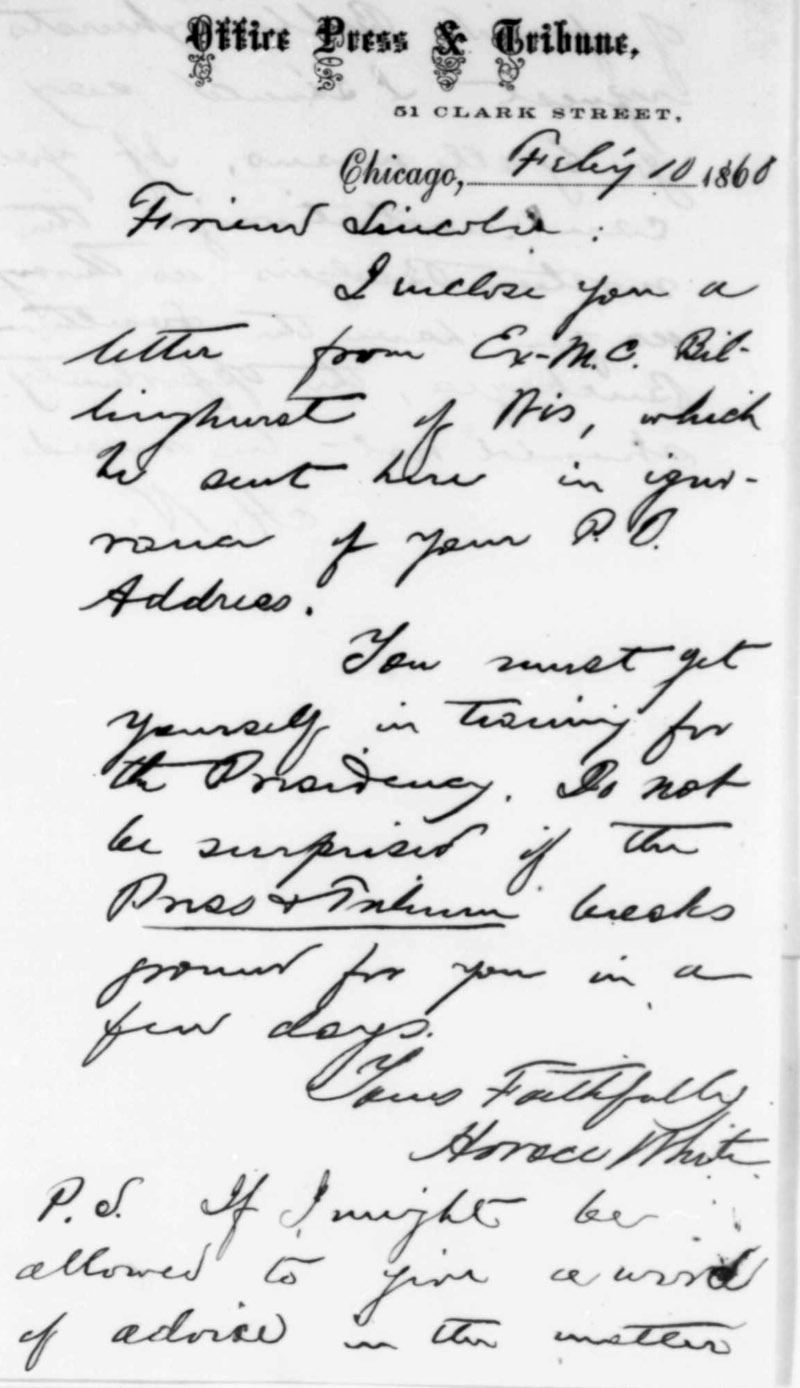 Office Press & Tribune,
51 CLARK STREET,
Chicago, Feb'y 10 1860
Friend Lincoln:
I inclose you a
letter from Ex-M.C. Bil-
linghurst of Wis, which
he sent here in igno-
rance of your P.O.
Address.
You must get
yourself in training for
the Presidency. Do not
be surprised if the
Press & Tribune breaks
ground for you in a
few days.
Yours Faithfully
Horace White
P.S. If I might be
allowed to give a word
of advice in the matter